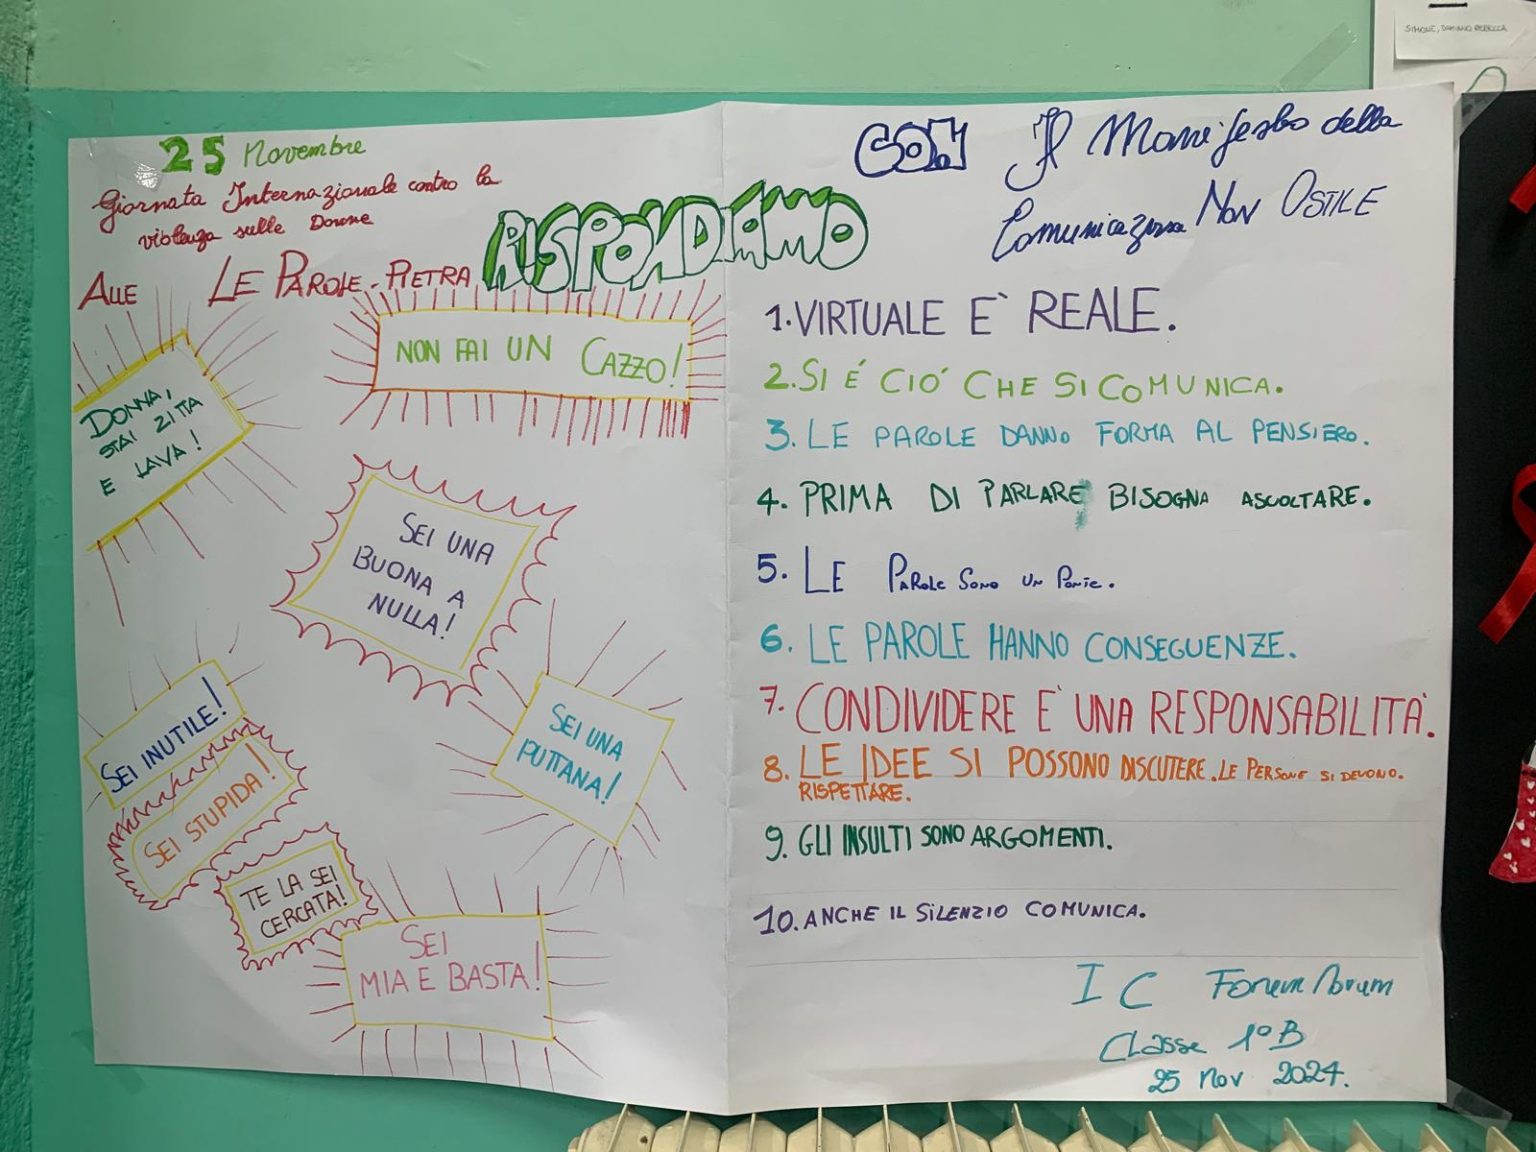 SIMONE, DAMIANO REBECCA
25 Novembre
Giornata Internazionale contro la
violenza sulle Donne
ALLE LE PAROLE-PIETRA RISPONDIAMO
CON Il Manifesto della
Comunicazione NON OSTILE
NON FAI UN CAZZO!
DONNA,
STAI ZITTA
E LAVA!
SEI UNA
BUONA A
NULLA!
SEI INUTILE!
SEI STUPIDA!
SEI UNA
PUTTANA!
TE LA SEI
CERCATA!
SEI
MIA E BASTA!
1. VIRTUALE E' REALE.
2. SI É CIÓ CHE SI COMUNICA.
3. LE PAROLE DANNO FORMA AL PENSIERO.
4. PRIMA DI PARLARE BISOGNA ASCOLTARE.
5. LE PAROLE SONO UN PONTE.
6. LE PAROLE HANNO CONSEGUENZE.
7. CONDIVIDERE E' UNA RESPONSABILITÀ.
8. LE IDEE SI POSSONO DISCUTERE. LE PERSONE SI DEVONO.
RISPETTARE.
9. GLI INSULTI SONO ARGOMENTI.
10. ANCHE IL SILENZIO COMUNICA.
I C Forum Novum
Classe 1° B
25 Nov 2024.